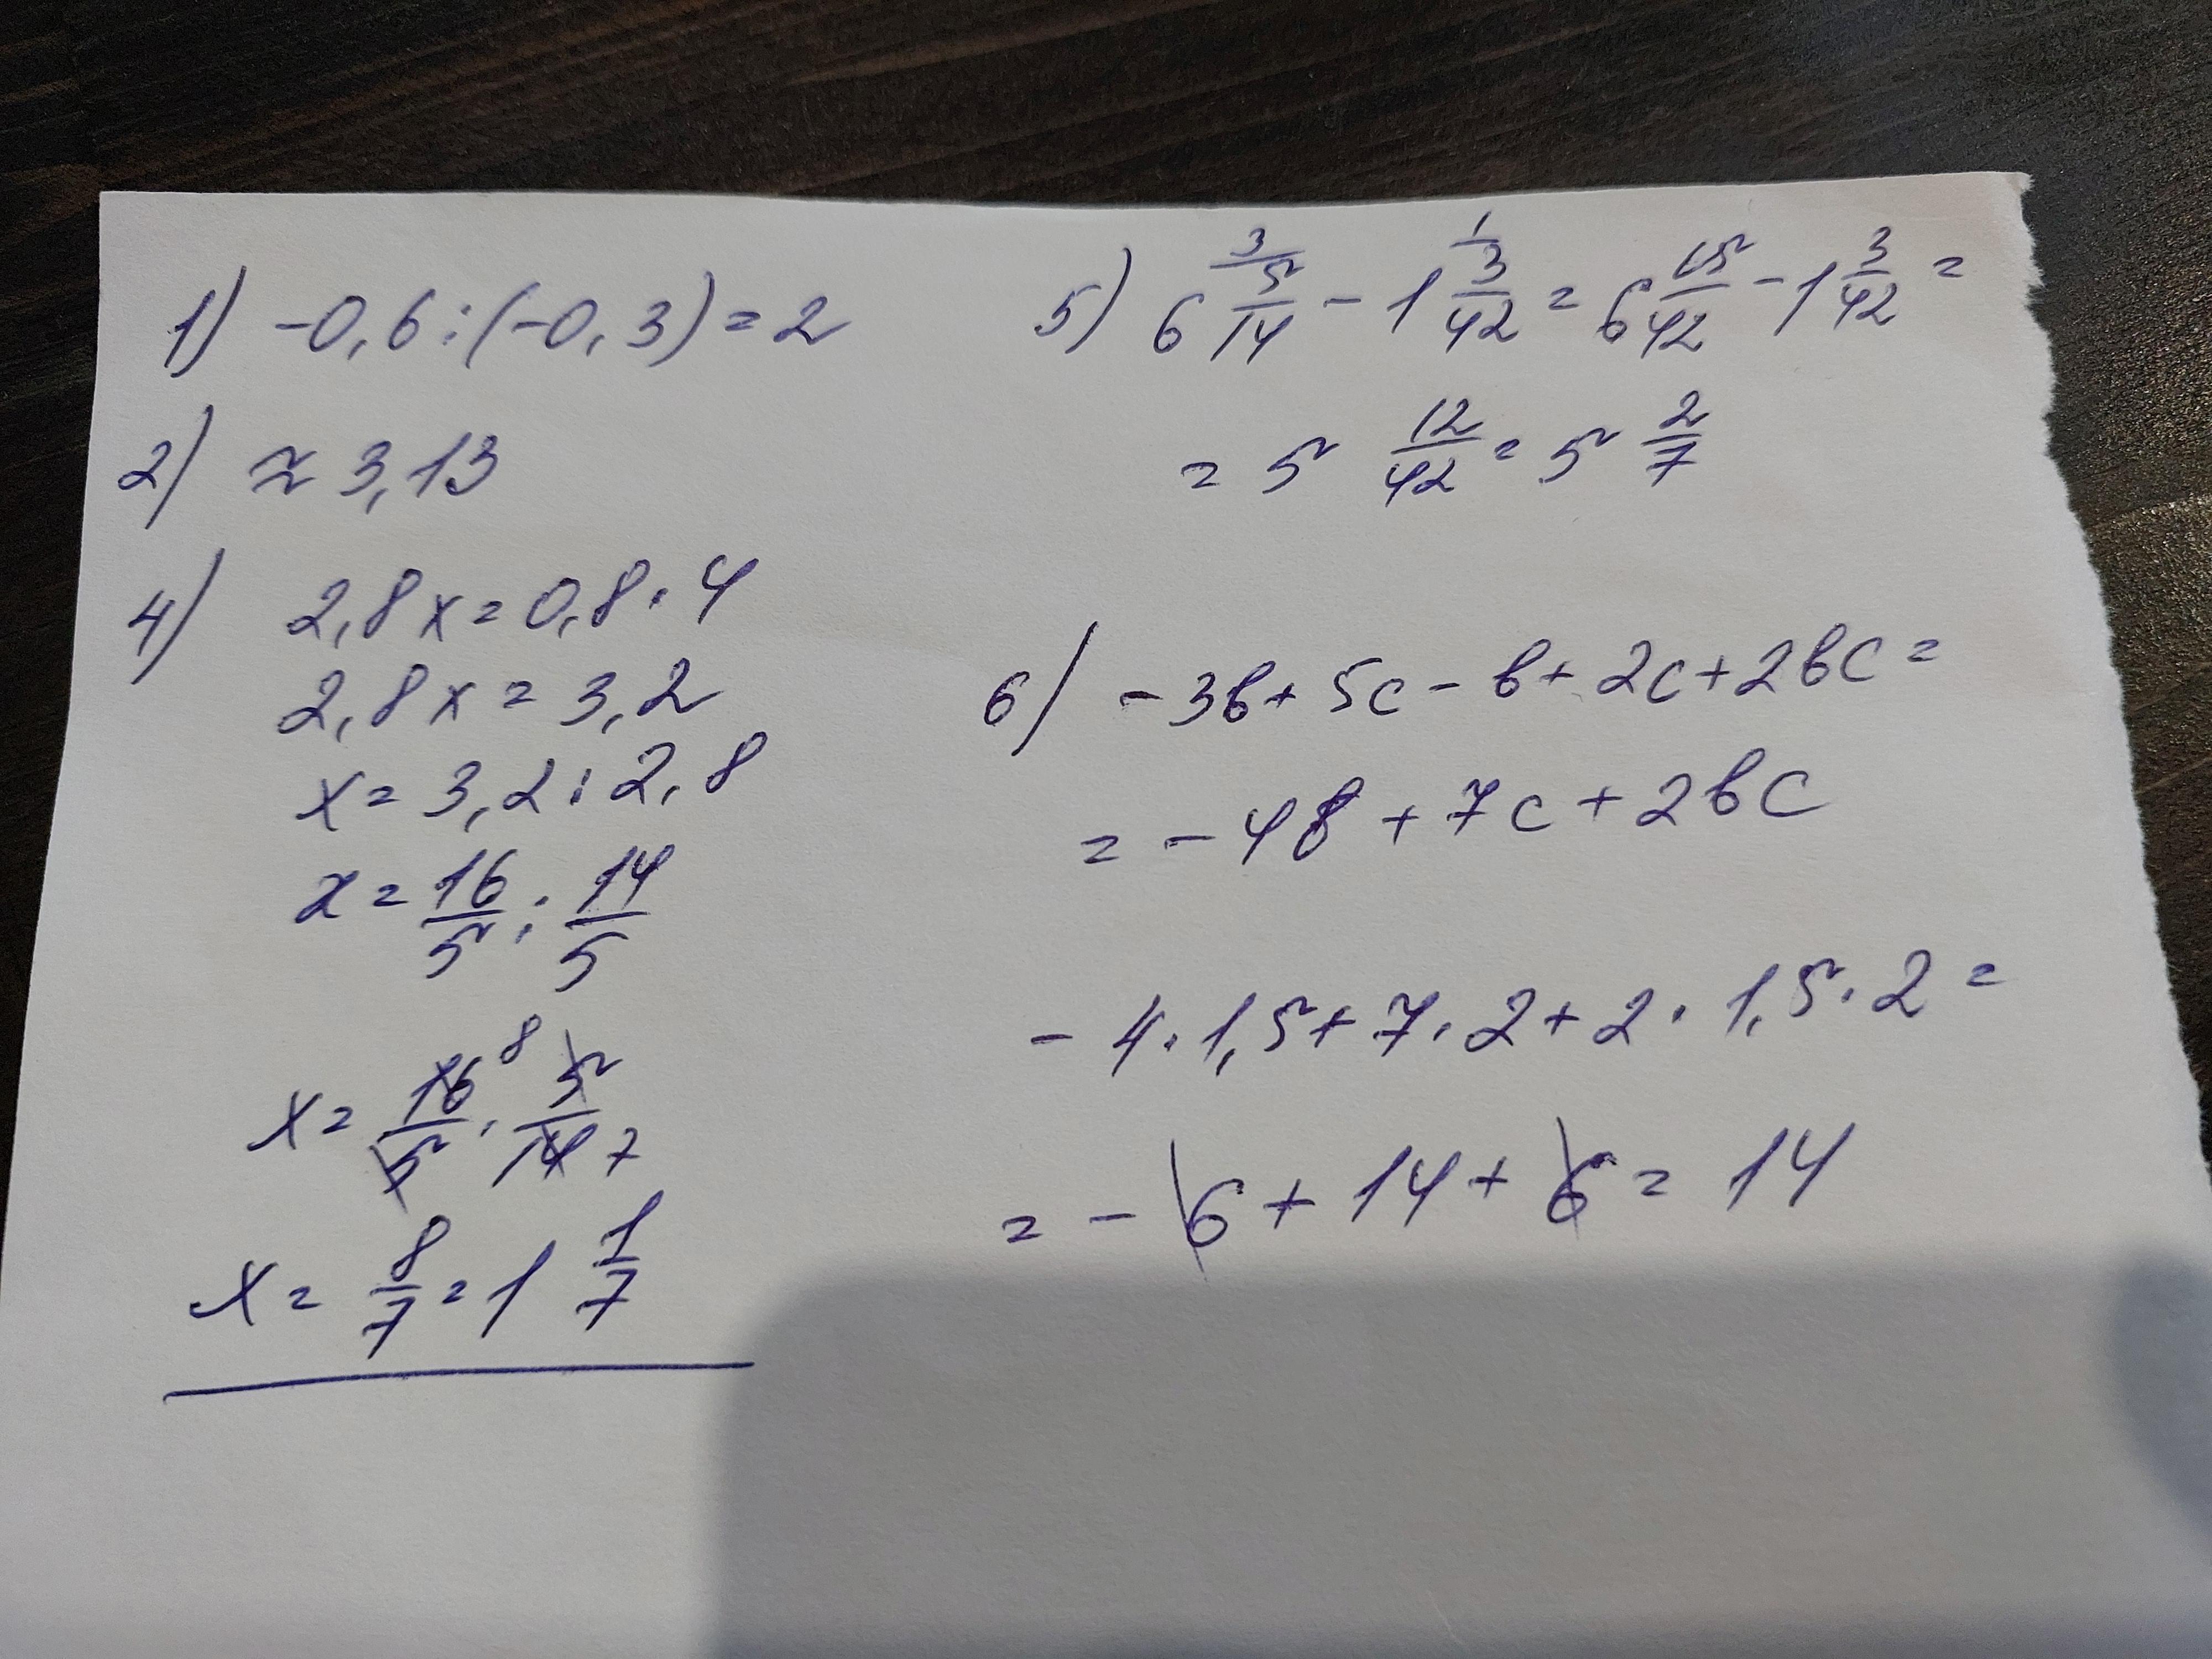 1) -0,6:(-0,3)=2
2) ≈ 3,13
4) 2,8x=0,8·4
2,8x=3,2
x=3,2:2,8
x=16/5:14/5
x=16/5 8 · 5/14 7
x=8/7=1 1/7
5) 6 5/14 3/ - 1 3/42 1/ = 6 15/42 - 1 3/42 =
= 5 12/42 = 5 2/7
6) -3b+5c-b+2c+2bc=
= -4b+7c+2bc
-4·1,5+7·2+2·1,5·2=
= -6+14+6=14